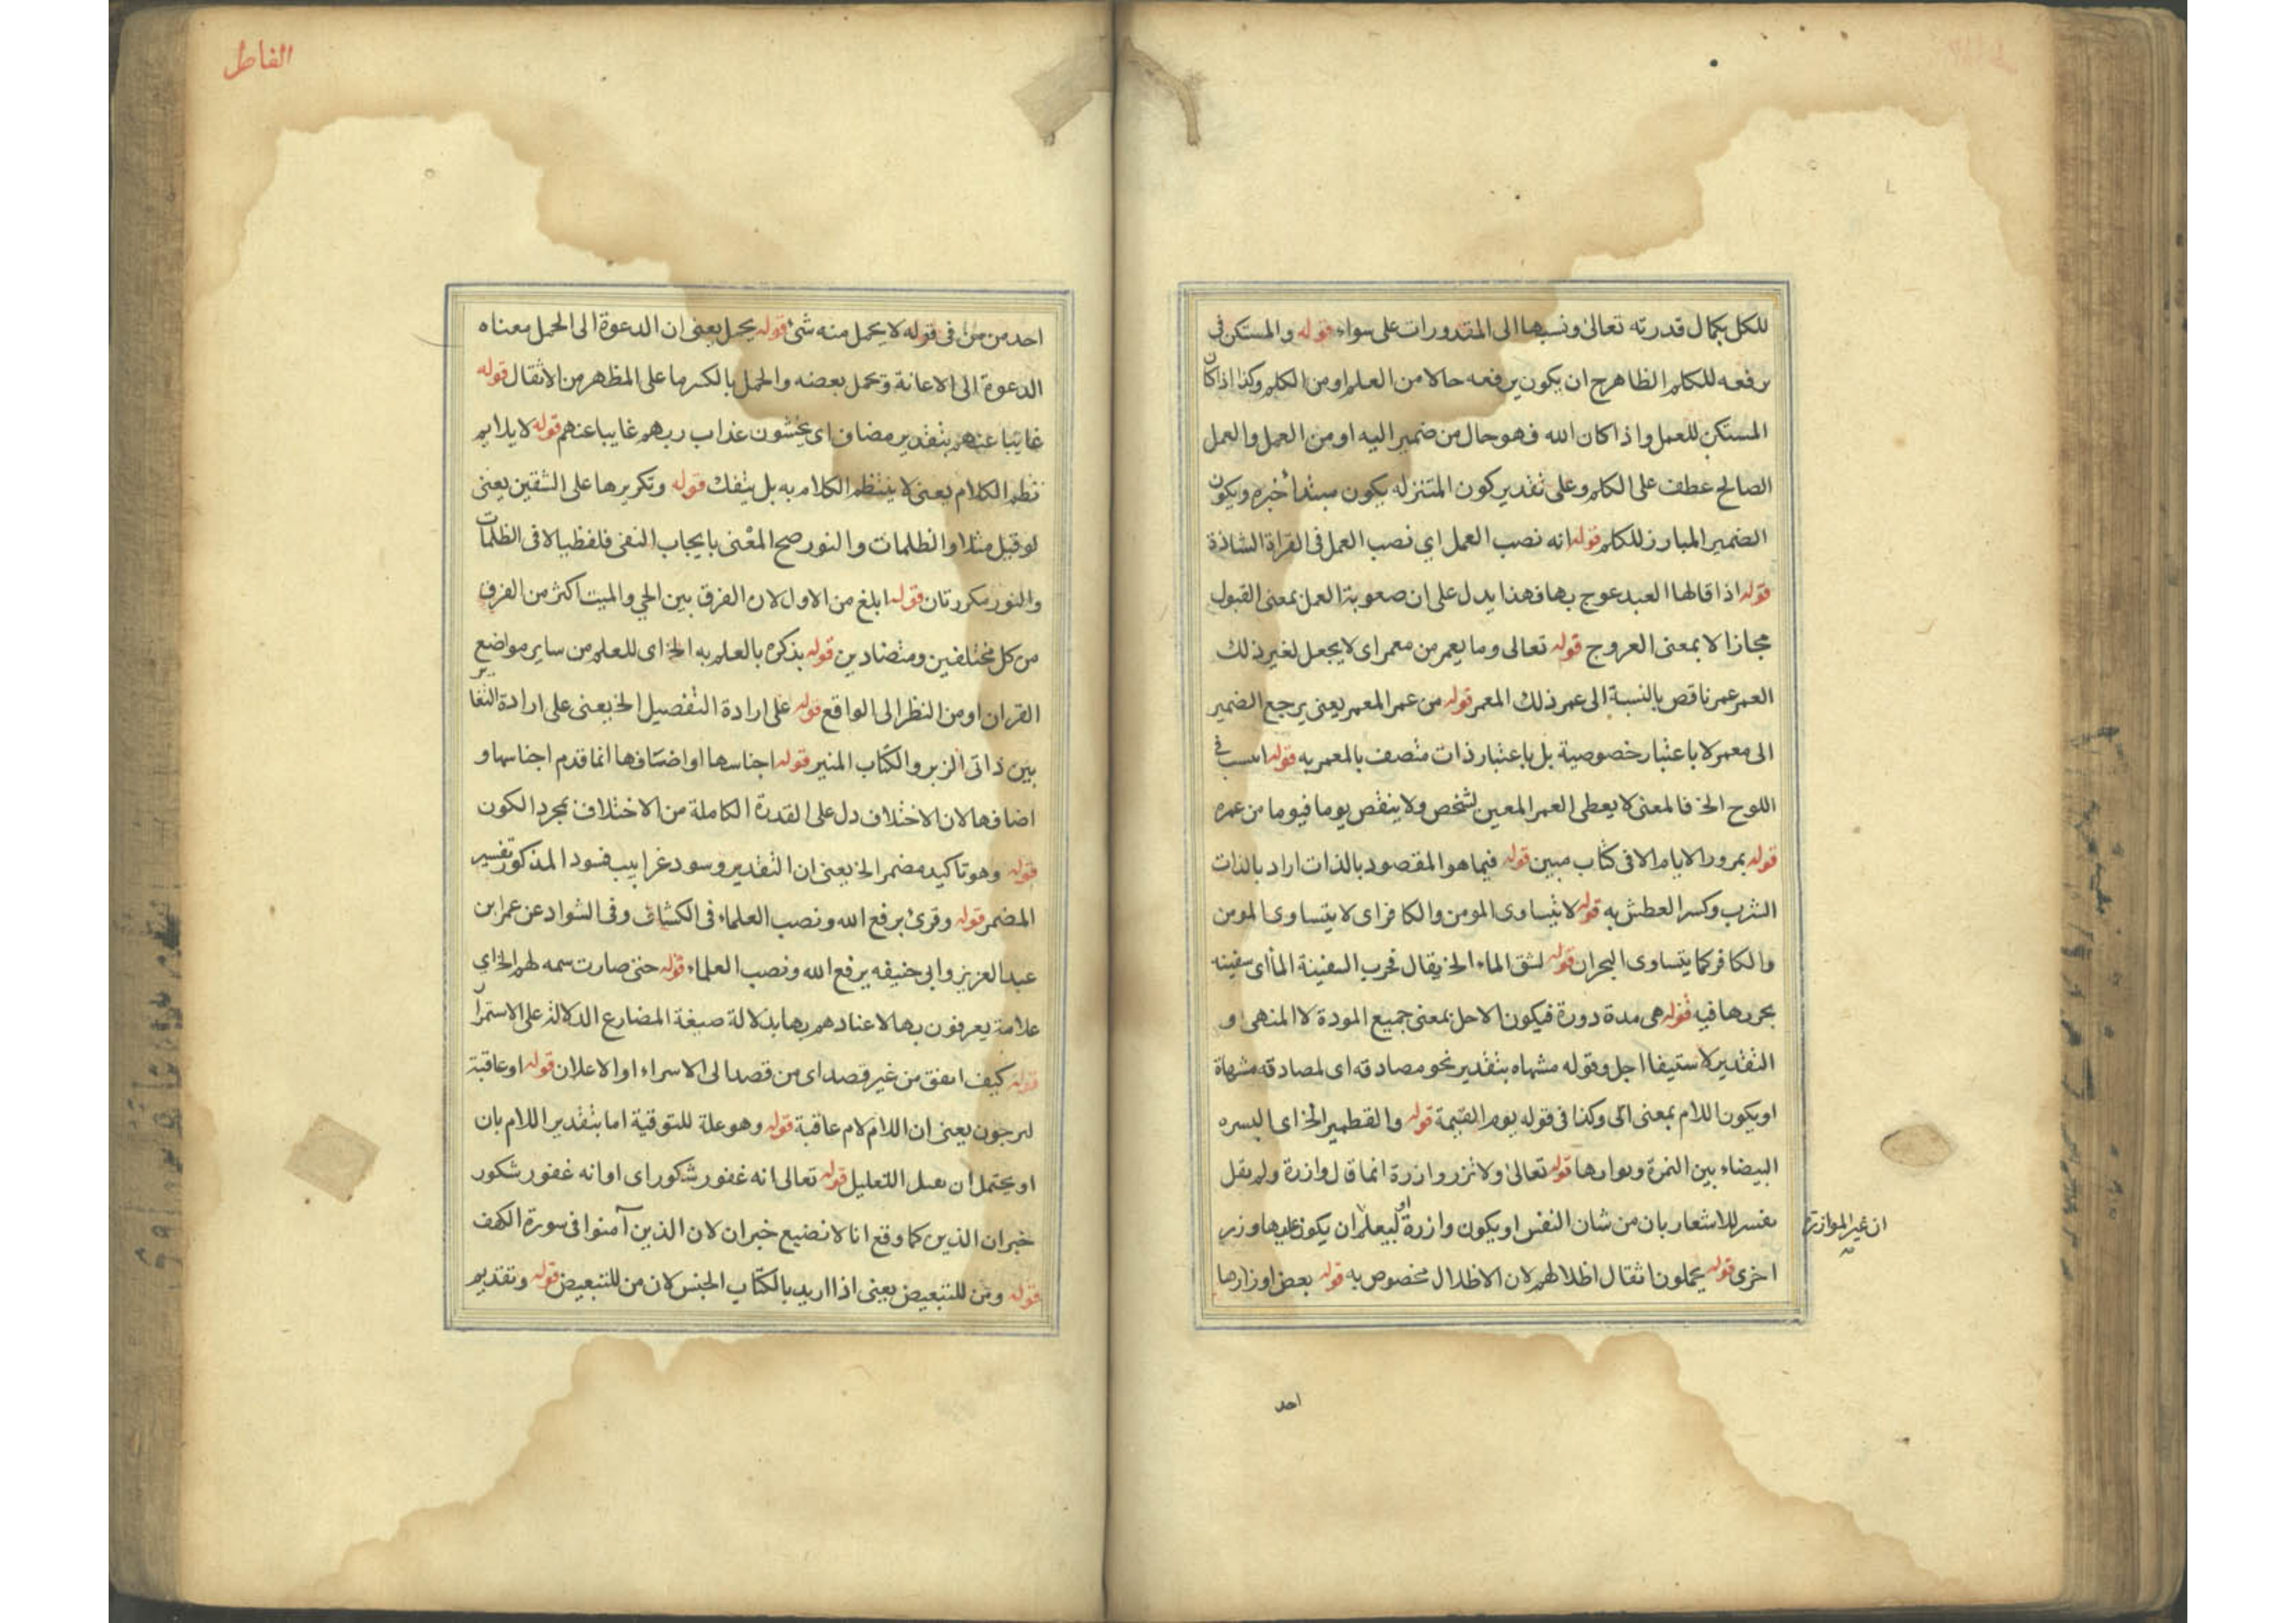 للكل بكمال قدرته تعالى ونسبها الى المقدورات على سواء قوله والمستكن فى
يرفعه للكلم الظاهرح ان يكون يرفعه حالا من العلم او من الكلم وكذا اذا كان
المستكن للعمل واذا كان الله فهو حال من ضمير اليه او من العمل والعمل
الصالح عطف على الكلم وعلى تقدير كون المتنزله يكون مبتدأ خبره ويكون
الضمير المبارز للكلم قوله انه نصب العمل اى نصب العمل فى القراة الشاذة
قوله اذا قالها العبد عوج بها فهذا يدل على ان صعوبة العمل بمعنى القبول
مجازا لا بمعنى العروج قوله تعالى وما يعمر من معمر اى لا يجعل لغير ذلك
العمر عمر ناقص بالنسبة الى عمر ذلك المعمر قوله من عمر المعمر يعنى يرجع الضمير
الى معمر لا باعتبار خصوصية بل باعتبار ذات متصف بالمعمر به قوله فى
اللوح الخ فالمعنى لا يعطى العمر المعين لشخص ولا ينقص يوما فيوما من عمره
قوله بمرور الايام الا فى كتاب مبين قوله فيما هو المقصود بالذات اراد بالذات
الشرب وكسر العطش به قوله لا يتساوى المومن والكافر اى لا يتساوى المومن
والكافر كما يتساوى البحران قوله لشق الماء الخ يقال مخرب السفينة الماأى سفينه
بجريها فيه قوله هى مدة دورة فيكون الاجل بمعنى جميع المودة لا المنهى و
التقدير لاستيفا اجل وقوله مشهاه بتقدير نحو مصادقه اى لمصادقه مشهاة
او يكون اللام بمعنى الى وكذا فى قوله يوم القيمة قوله والقطمير الخ اى البسره
البيضاء بين التمرة ونوارها قوله تعالى ولا تزر وازرة انما قال وازرة ولم يقل
نفس للاشعار بان من شان النفس او يكون وازرة او ليعلم ان يكون عليها وزر
ان غير الموازرة
اخرى قوله يحملون اثقال اظلالهم لان الاظلال مخصوص به قوله بعض اوزارها
احد
الفاطر
احد من من فى قوله لا يحمل منه شئ قوله يحمل يعنى ان الدعوة الى الحمل معناه
الدعوة الى الاعانة وتحمل بعضه والحمل بالكسر ما على المظهر من الاثقال قوله
غايبا عنهم بتقدير مضاف اى يخشون عذاب ربهم غايبا عنهم قوله لا يلايم
نظم الكلام يعنى لا ينتظم الكلام به بل يتفك قوله وتكريرها على الشقين يعنى
لو قيل مثلا والظلمات والنور صح المعنى بايجاب النفى فلفظيا لا فى الظلمات
والنور مكررتان قوله ابلغ من الاول لان الفرق بين الحى والميت اكثر من الفرق
من كل مختلفين ومتضادين قوله بذكره بالعلم به الخ اى للعلم من ساير مواضع
القران او من النظر الى الواقع قوله على ارادة التفصيل الخ يعنى على ارادة التغاير
بين ذاتى الزبر والكتاب المنير قوله اجناسها او اضافها انما قدم اجناسها و
اضافها لان الاختلاف دل على القدرة الكاملة من الاختلاف بمجرد الكون
قوله وهو تاكيد مضمر الخ يعنى ان التقدير وسود غرابيب فسود المذكور تفسير
المضمر قوله وقرئ برفع الله ونصب العلماء فى الكشاف وفى الشواد عن عمر ابن
عبد العزيز وابى حنيفه برفع الله ونصب العلماء قوله حتى صارت سمه لهم الخ اى
علامة يعرفون بها لاعتيادهم بها بدلالة صيغة المضارع الدلالة على الاستمرار
قوله كيف اتفق من غير قصد اى من قصد الى الاسراء او الاعلان قوله او عاقبة
ليرجون يعنى ان اللام لام عاقبة قوله وهو علة للتوقية اما بتقدير اللام بان
او يحتمل ان التعليل قوله تعالى انه غفور شكور اى او انه غفور شكور
خبر ان الذين كما وقع انا لا نضيع خبر ان لان الذين آمنوا فى سورة الكهف
قوله ومن للتبعيض يعنى اذا اريد بالكتاب الجنس لان من للتبعيض قوله وتقديم